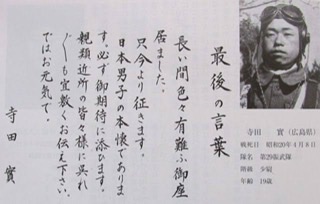 最後の言葉
長い間色々有難ふ御座
居ました。
只今より征きます。
日本男子の本懐でありま
す。必ず御期待に添ひます。
親類近所の皆々様に呉れ
ぐ〳〵も宜敷くお伝え下さい。
ではお元気で。
寺田 實
寺田 實(広島県)
戦死日 昭和20年4月8日
隊名 第29振武隊
階級 少尉
年齢 19歳